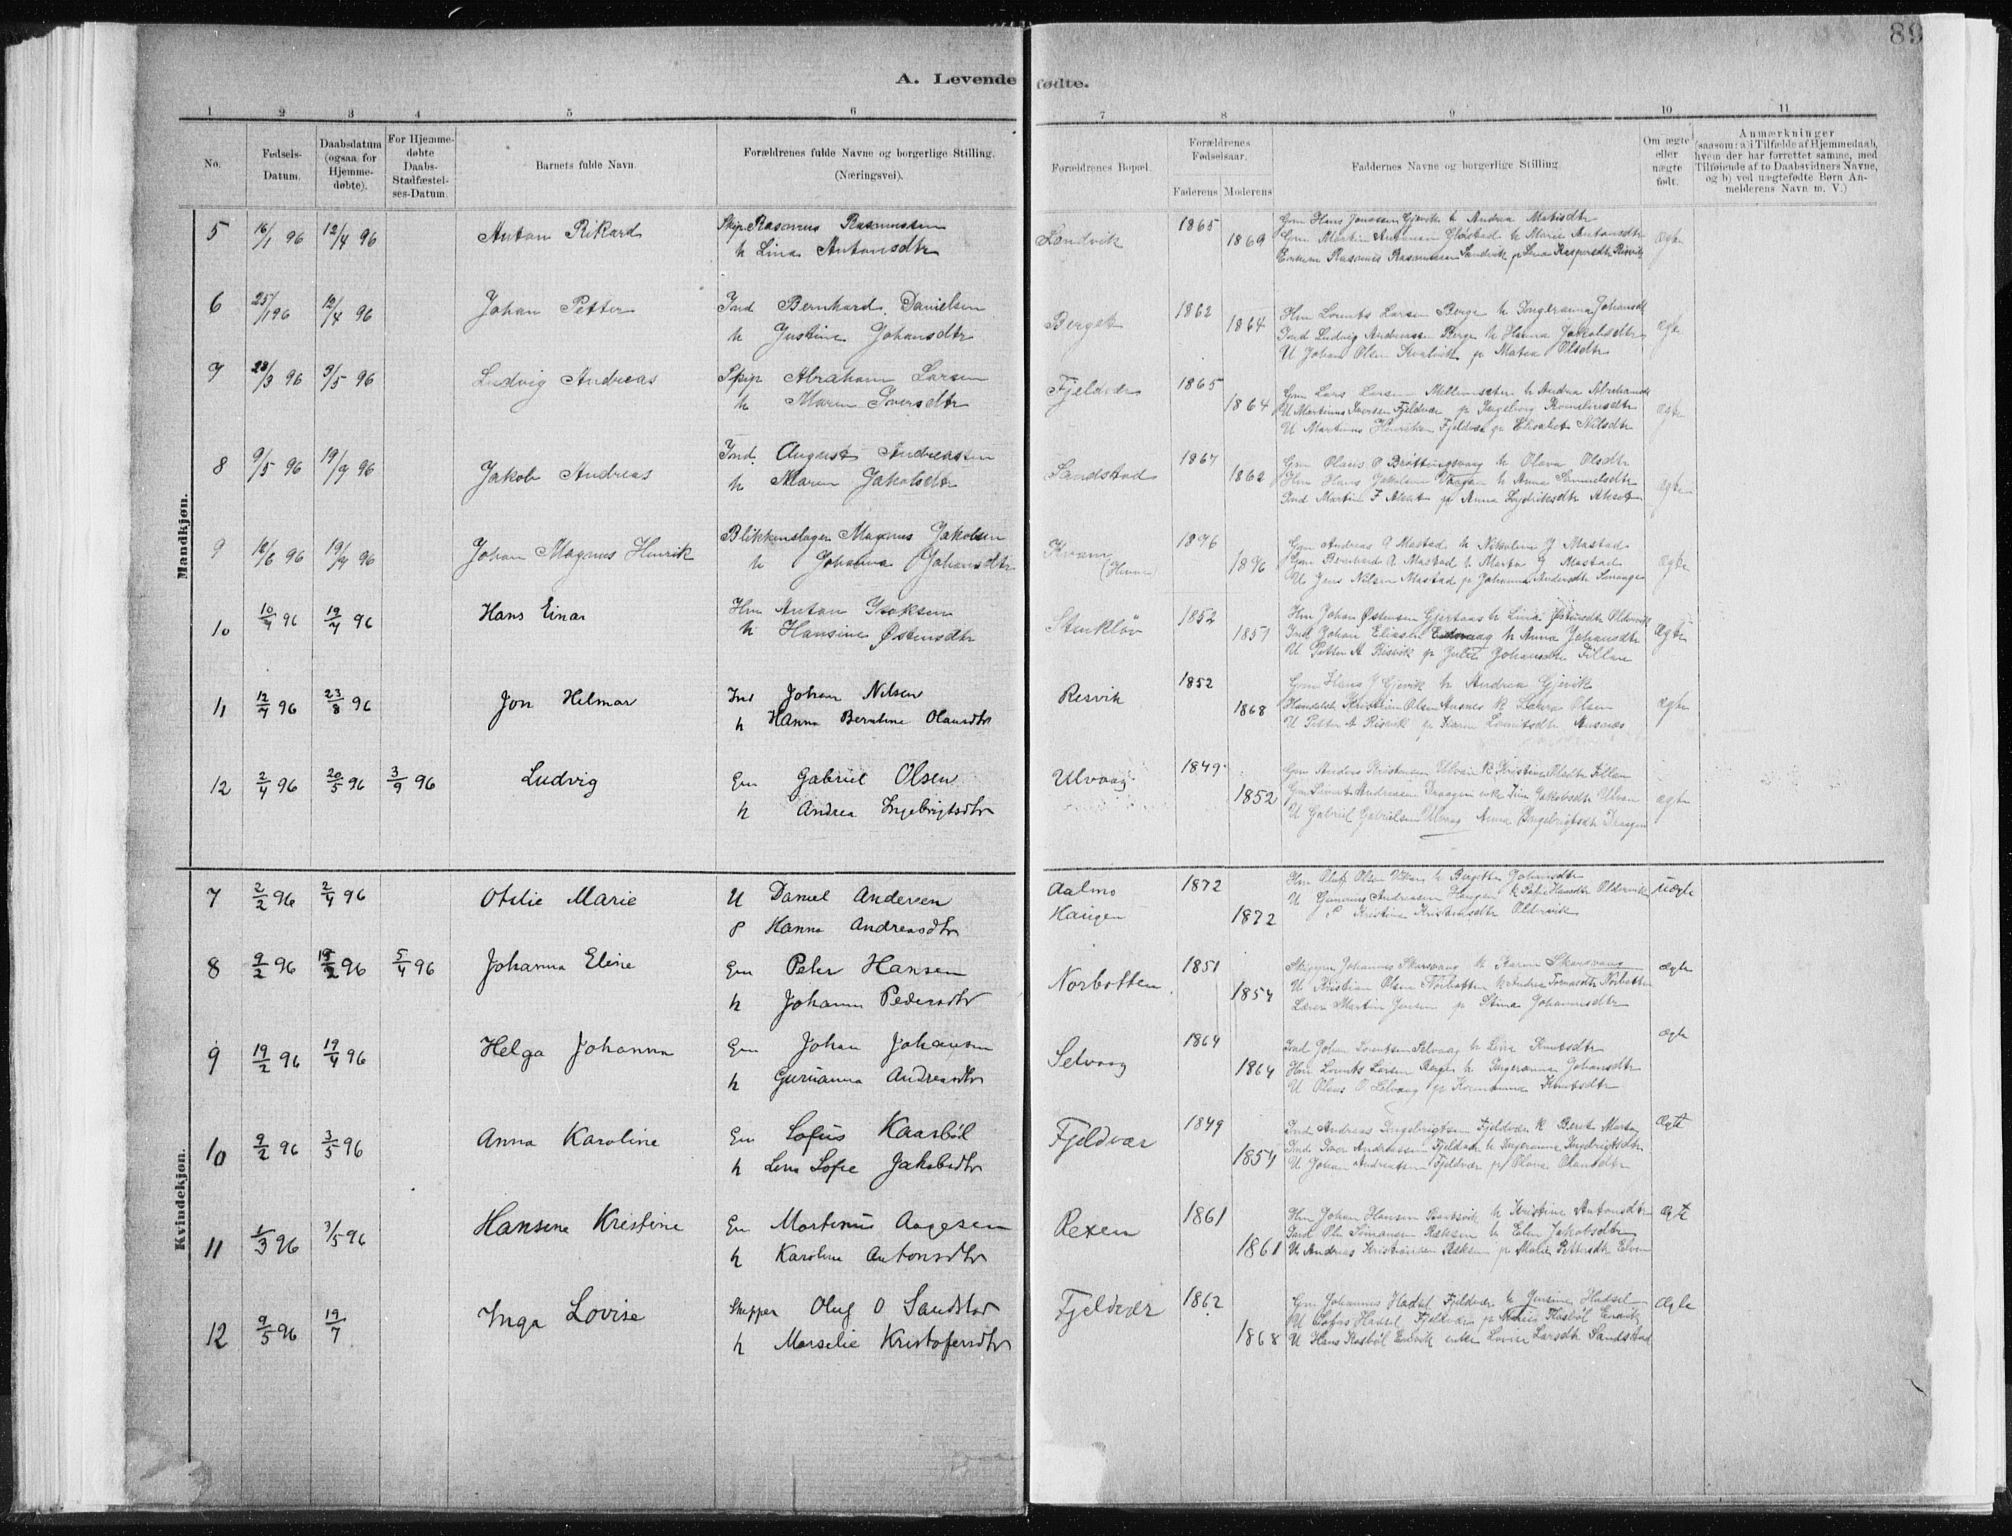 89
A. Levende fødte.
1 2 3 4 5 6 7 8 9 10 11
No.
Fødsels-Datum.
Daabsdatum (ogsaa for Hjemme-døbte).
For Hjemme-døbte Daabs-Stadfæstel-ses-Datum.
Barnets fulde Navn.
Forældrenes fulde Navne og borgerlige Stilling. (Næringsvei).
Forældrenes Bopæl.
Forældrenes Fødselsaar.
Faderens Moderens
Faddernes Navne og borgerlige Stilling.
Om ægte eller uægte født.
Anmærkninger
(saasom: a) i Tilfælde af Hjemmedaab,
hvem der har forrettet samme, med
Tilføiende af to Daabsvidners Navne,
og b) ved uægtefødte Børn An-
melderens Navn m. V.)
Mandkjøn.
5 16/1 96 12/4 96 Anton Rikard Skip Rasmus Rasmussen Sandvik 1865 Gm Hans Jonssen Gjevik h Andrea Matisdtr
h Lina Antonsdtr 1869 Gm Martin Antonsen h Marie Antonsdtr ægte
Rasmus Rasmussen Sandvik
6 25/1 96 12/4 96 Johan Petter Ind Bernhard Danielsen Berget 1862 Hm Lorents Larsen Berge h Ingeranna Johansdtr
h Justine Johansdtr 1864 Ind Ludvig Andreassen Berge h Hanna Jakobsdtr ægte
U Johan Olsen Kvalvik p Matea Olsdtr
7 28/3 96 3/5 96 Ludvig Andreas Skip Abraham Larsen Fjeldvær 1865 Gm Lars Larsen h Andrea
h Maren Iversdtr 1864 U Martinus Iversen Fjeldvær p Ingeborg ægte
U Martinus Henriksen Fjeldvær p Elisabet Nilsdtr
8 9/5 96 19/7 96 Jakob Andreas Ind. August Andreassen Sandstad 1867 Gm Olaus P Brattingsvaag h Olava Olsdtr
h Maren Jakobsdtr 1862 Hm Hans Jakobsen h Anna Samuelsdtr ægte
Ind Martin F Akset p Anna Akset
9 16/6 96 19/7 96 Johan Magnus Henrik Blikkenslager Magnus Jakobsen Kvam (Hevne) 1896 Gm Andreas A Mastad h Nikoline J Mastad
h Johanna Johansdtr 1896 Gm Bernhard A Mastad h Marta J Mastad ægte
U Jens Nilsen Mastad p Johanna Andersdtr
10 10/7 96 19/7 96 Hans Einar Hm Anton Isaksen Stenkløv 1852 Hm Johan Østensen h Lina Østensdtr Oldervik
h Hansine Østensdtr 1857 Ind Johan Eliassen h Anna Johansdtr ægte
U Petter A Risvik p Julie Johansdtr Fillan
11 12/7 96 23/8 96 Jon Helmar Ind Johan Nilsen Resvik 1852 Gm Hans J Gjevik h Andrea Gjevik
h Hanna Berntine Olausdtr 1868 Handelsb. Kristian Olsen Ansnes h Laura Olsen ægte
U Petter A Risvik p Karen Lorentsdtr Ansnes
12 2/4 96 20/5 96 3/9 96 Ludvig Gm Gabriel Olsen Ulvaag 1849 Gm Anders Kristensen Ulvan h Kristine Fillan
h Andrea Ingebrigtsdtr 1852 Gm Andreasen Draagen Jakobsdtr Ulvan ægte
U Gabriel Gabrielsen Ulvaag Anna Ingebrigtsdtr Draagen
Kvindekjøn.
7 2/2 96 2/4 96 Otilie Marie U Daniel Andersen Aalmo 1872 Hm Oluf Olsen h Bergitte Johansdtr uægte
P Hanna Andreasdtr Haugen 1872 U Gunerius Andreasen Haugen Hansdtr Oldervik
P Kristine Kristensdtr Oldervik
8 9/2 96 15/2 96 5/4 96 Johanna Eline Gm Peter Hansen Norbotten 1851 Skipper Johannes Skarsvaag h Karen Skarsvaag ægte
h Johanna Pedersdtr 1854 U Kristian Olsen Norbotten h Andrea Tomasdtr Norbotten
Lærer Martin Jensen p Stina Johannesdtr
9 19/2 96 19/4 96 Helga Johanna Gm Johan Johansen Selvaag 1864 Ind Johan Lorentsen Selvaag h Lina Knutsdtr ægte
h Gurianna Andreasdtr 1864 Hm Lorents Larsen Berget h Ingeranna Johansdtr
U Olaus O Selvaag p Knutsdtr
10 9/2 96 3/5 96 Anna Karoline Gm Lofus Kaarbøl Fjeldvær 1849 Ind Andreas Ingebrigtsen Fjeldvær h Berit Marta ægte
h Lena Sofie Jakobsdtr 1854 Ind Iver Andreassen Fjeldvær h Ingeranna Ingebrigtsdtr
U Johan Andreassen Fjeldvær p Olava Olausdtr
11 1/3 96 3/5 96 Hansena Kristine Gm Martinus Aagesen Rexen 1861 Hm Johan Hansen h Kristine Antonsdtr ægte
h Karoline Antonsdtr 1861 Ind Ole Simonsen Reksen h Elen Jakobsdtr
U Andreas Kristiansen Reksen p Malie Pettersdtr
12 9/5 96 19/7 Inga Lovise Skipper Oluf O Sandstad Fjeldvær 1862 Gm Johannes Hadsel Fjeldvær h Gunine Hadsel ægte
h Marselie Kristofersdtr 1868 U Lofus Hadsel Fjeldvær p Kaarbøl
U Hans Kaarbøl enke Lovise Larsdtr Sandstad